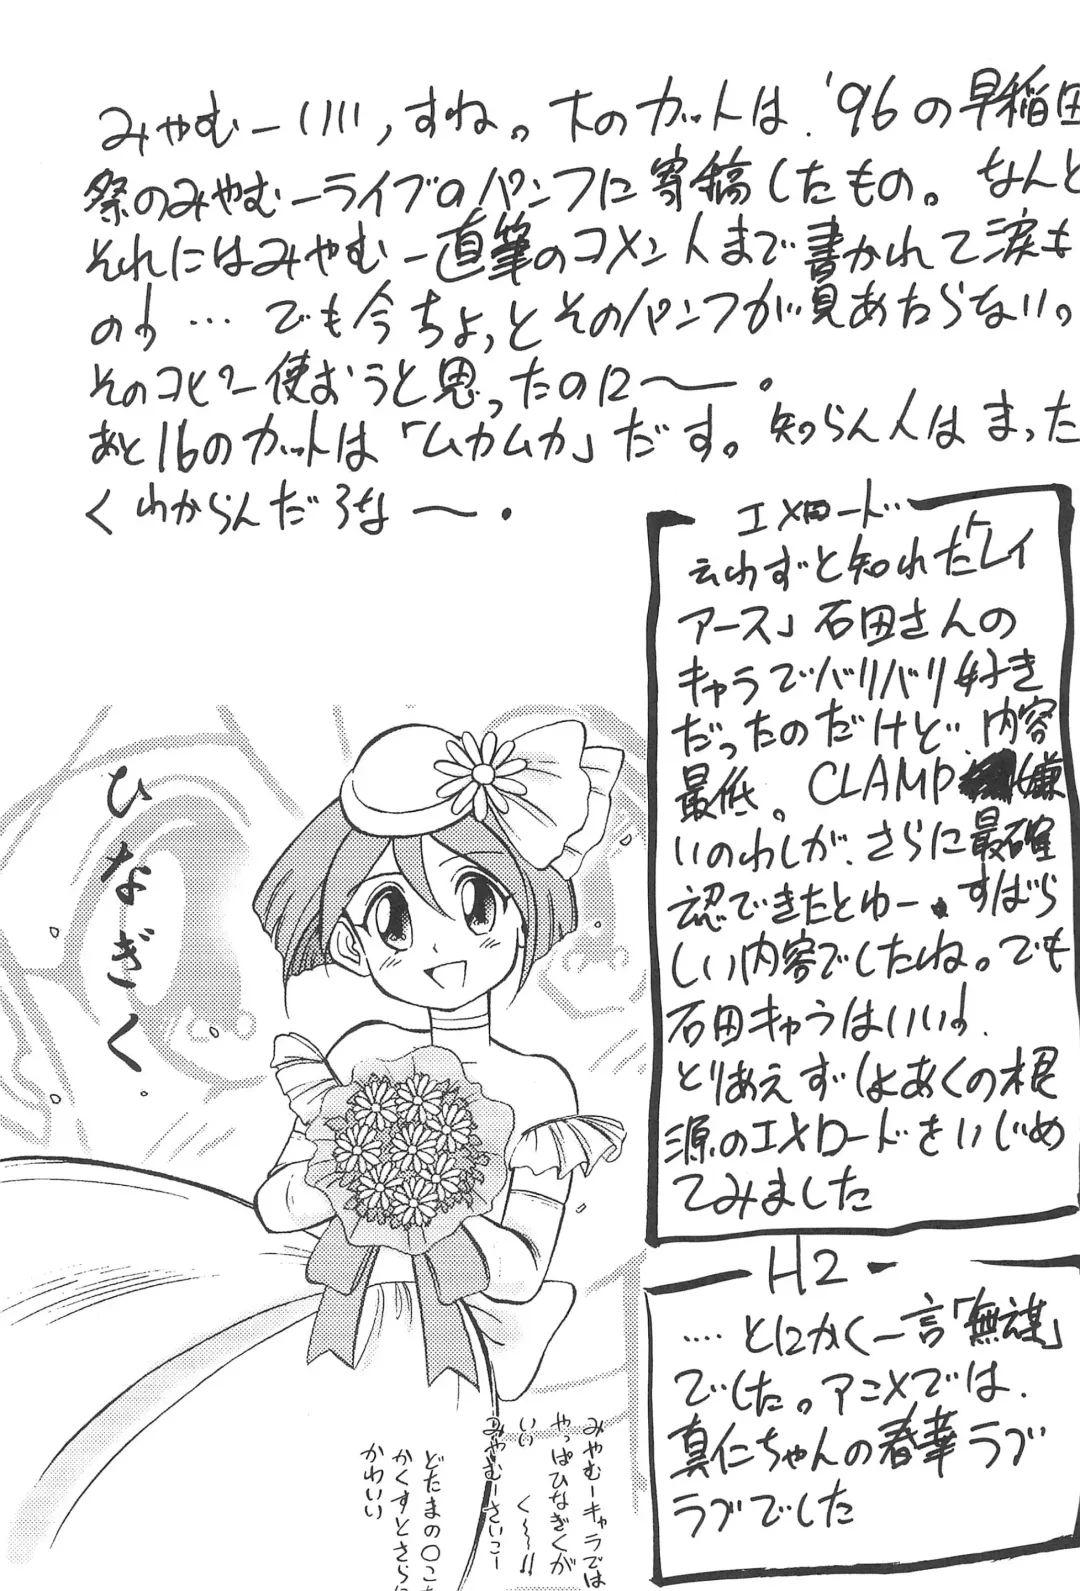 みやむーいい,すね。下のカットは、'96の早稲田
祭のみやむーライブのパンフに寄稿したもの。なんと
それにはみやむー直筆のコメントまで書かれて涙も
のョ…でも今ちょっとそのパンフが見あたらない。
そのコピー使おうと思ったのに〜。
あと16のカットは「ムカムカ」だす。知らん人はまった
くわからんだろな〜。
エメロード
云わずと知れた「レイ
アース」石田さんの
キャラでバリバリ好き
だったのだけど、内容
最低。CLAMP嫌
いのわしが、さらに最確
認できたとゆー。すばら
しい内容でしたね。でも
石田キャラはいいョ。
とりあえず はよあくの根
源のエメロードをいじめ
てみました
H2
‥‥とにかく一言「無謀」
でした。アニメでは、
真仁ちゃんの春華ラブ
ラブでした
ひなぎく
みやむーキャラでは
やっぱひなぎくが
いい く〜!!
みやむーさいこー
どたまの〇こち
かくすとさらに
かわいい